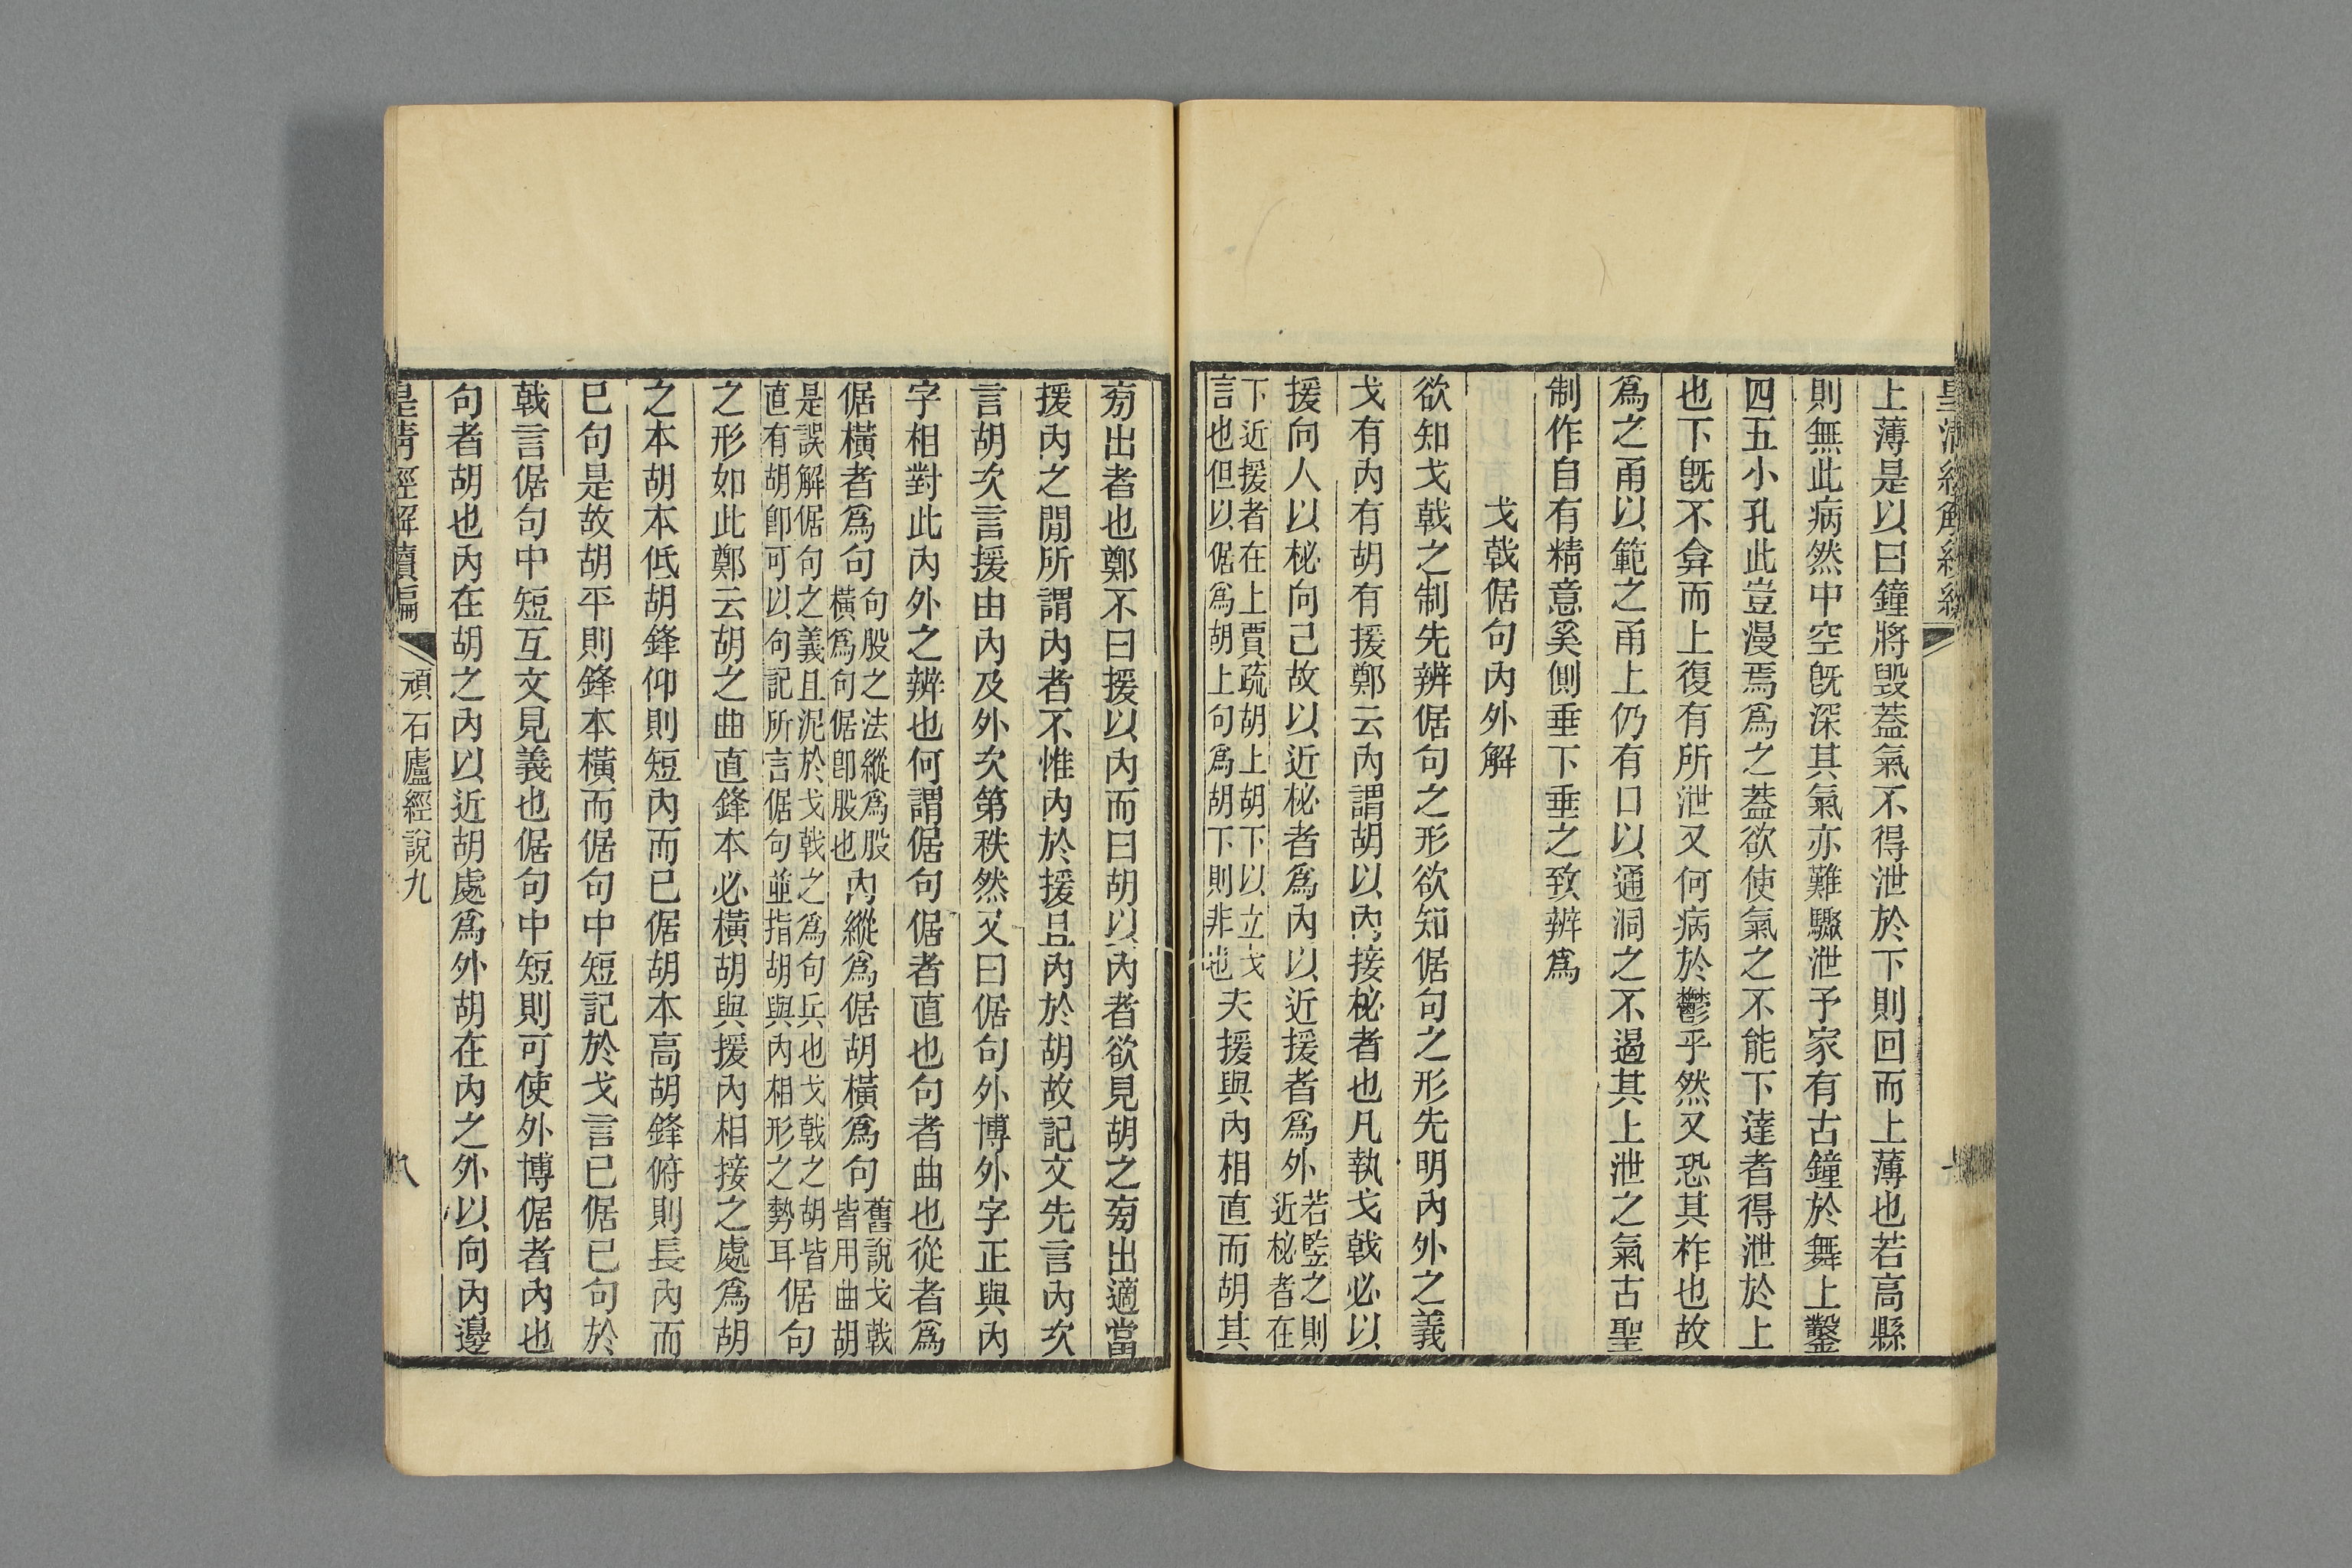 上薄是以曰鐘將毀蓋氣不得泄於下則回而上薄也若高縣
則無此病然中空旣深其氣亦難驟泄予家有古鐘於舞上鑿
四五小孔此豈漫焉爲之蓋欲使氣之不能下達者得泄於上
也下旣不弇而上復有所泄又何病於鬱乎然又恐其柞也故
爲之甬以範之甬上仍有口以通洞之不遏其上泄之氣古聖
制作自有精意奚側垂下垂之致辨爲
戈戟倨句內外解
欲知戈戟之制先辨倨句之形欲知倨句之形先明內外之義
戈有內有胡有援鄭云內謂胡以內接柲者也凡執戈戟必以
援向人以柲向己故以近柲者爲內以近援者爲外若豎之則近柲者在
下近援者在上賈疏胡上胡下以立戈言也但以倨爲胡上句爲胡下則非也夫援與內相直而胡其
㫄出者也鄭不曰援以內而曰胡以內者欲見胡之㫄出適當
援內之閒所謂內者不惟內於援且內於胡故記文先言內次
言胡次言援由內及外次第秩然又曰倨句外博外字正與內
字相對此內外之辨也何謂倨句倨者直也句者曲也從者爲
倨橫者爲句句股之法縱爲股橫爲句倨卽股也內縱爲倨胡橫爲句舊說戈戟皆用曲胡
是誤解倨句之義且泥於戈戟之爲句兵也戈戟之胡皆直有胡卽可以句記所言倨句並指胡與內相形之勢耳倨句
之形如此鄭云胡之曲直鋒本必橫胡與援內相接之處爲胡
之本胡本低胡鋒仰則短內而已倨胡本高胡鋒俯則長內而
已句是故胡平則鋒本橫而倨句中短記於戈言已倨已句於
戟言倨句中短互文見義也倨句中短則可使外博倨者內也
句者胡也內在胡之內以近胡處爲外胡在內之外以向內邊
皇淸經解續編 頑石廬經說九 八